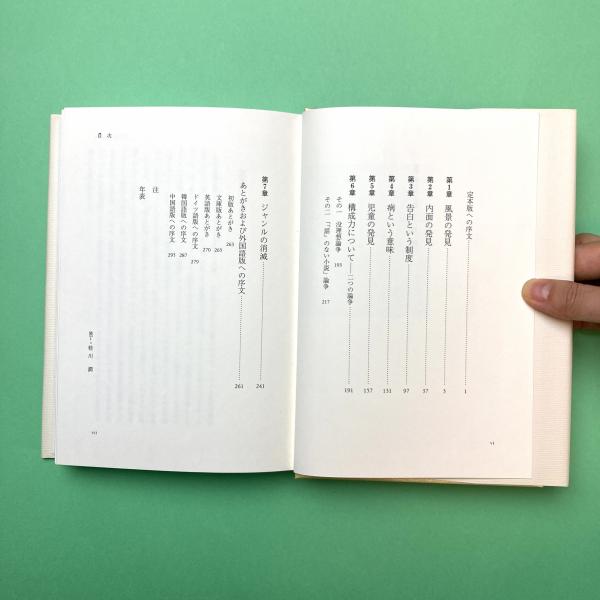 定本版への序文 1
第1章 風景の発見 3
第2章 内面の発見 37
第3章 告白という制度 97
第4章 病という意味 131
第5章 児童の発見 157
第6章 構成力について——二つの論争 191
その一 没理想論争 193
その二 「話」のない小説」論争 217
vi
目 次
第7章 ジャンルの消滅 241
あとがきおよび外国語版への序文 261
初版あとがき 263
文庫版あとがき 265
英語版あとがき 270
ドイツ語版への序文 279
韓国語版への序文 287
中国語版への序文 291
注
年表
装丁・桂川 潤
vii